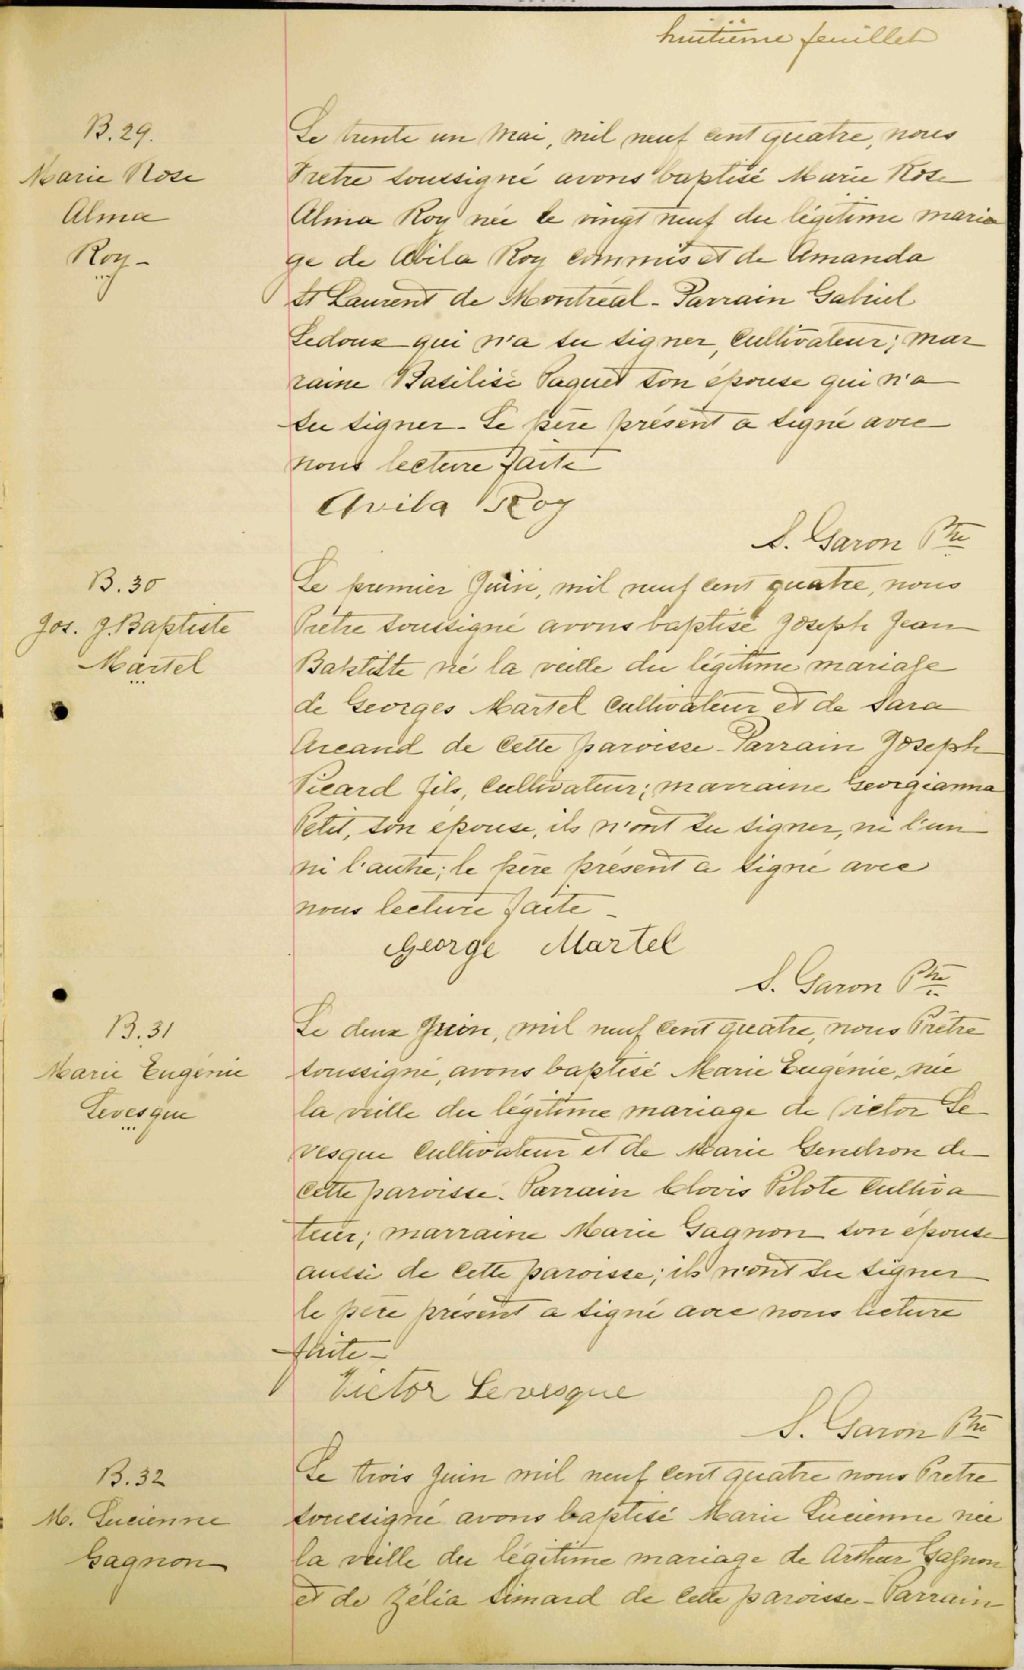 huitième feuillet
B. 29.
Marie Rose
Alma
Roy -
Le trente un Mai, mil neuf cent quatre, nous
Prêtre soussigné avons baptisé Marie Rose
Alma Roy née le vingt neuf du légitime maria
ge de Avila Roy commis et de Amanda
St Laurent de Montréal - Parrain Gabriel
Ledoux qui n'a su signer, cultivateur; mar
raine Basilise Paquet son épouse qui n'a
su signer - Le père présent a signé avec
nous lecture faite
Avila Roy
S. Garon Ptre
B. 30
Jos. J. Baptiste
Martel
Le premier Juin, mil neuf cent quatre, nous
Prêtre soussigné avons baptisé Joseph Jean
Baptiste né la veille du légitime mariage
de Georges Martel cultivateur et de Sara
Arcand de cette paroisse - Parrain Joseph
Picard fils, cultivateur; marraine Georgianna
Petit, son épouse, ils n'ont su signer, ni l'un
ni l'autre; le père présent a signé avec
nous lecture faite -
George Martel
S. Garon Ptre
B. 31
Marie Eugénie
Levesque
Le deux Juin, mil neuf cent quatre, nous Prêtre
soussigné, avons baptisé Marie Eugénie, née
la veille du légitime mariage de Victor Le
vesque cultivateur et de Marie Gendron de
cette paroisse. Parrain Clovis Pilote cultiva
teur; marraine Marie Gagnon son épouse
aussi de cette paroisse; ils n'ont su signer
le père présent a signé avec nous lecture
faite -
Victor Levesque
S. Garon Ptre
B. 32
M. Lucienne
Gagnon
Le trois Juin mil neuf cent quatre nous Prêtre
soussigné avons baptisé Marie Lucienne née
la veille du légitime mariage de Arthur Gagnon
et de Zélia Simard de cette paroisse - Parrain